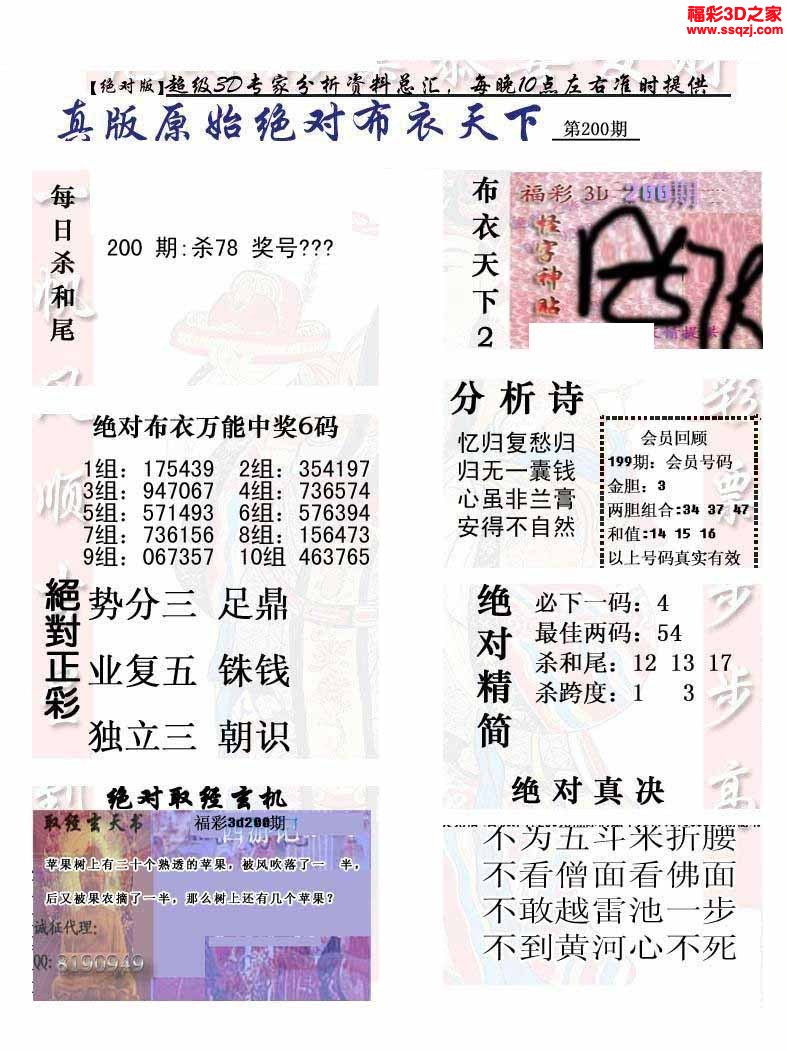 福彩3D之家
www.ssqzj.com
【绝对版】超级3D专家分析资料总汇，每晚10点左右准时提供
真版原始绝对布衣天下 第200期
每日杀和尾
200 期:杀78 奖号???
布衣天下2
福彩 3D 200期
怪字神贴
分析诗
忆归复愁归
归无一囊钱
心虽非兰膏
安得不自然
会员回顾
199期：会员号码
金胆：3
两胆组合:34 37 47
和值:14 15 16
以上号码真实有效
绝对布衣万能中奖6码
1组：175439 2组：354197
3组：947067 4组：736574
5组：571493 6组：576394
7组：736156 8组：156473
9组：067357 10组 463765
絕對正彩
势分三 足鼎
业复五 铢钱
独立三 朝识
绝对精简
必下一码：4
最佳两码：54
杀和尾：12 13 17
杀跨度：1 3
绝对取经玄机
取经玄天书 福彩3d200期
苹果树上有二十个熟透的苹果，被风吹落了一 半，
后又被果农摘了一半，那么树上还有几个苹果？
诚征代理：
QQ: 8190949
绝对真决
不为五斗米折腰
不看僧面看佛面
不敢越雷池一步
不到黄河心不死